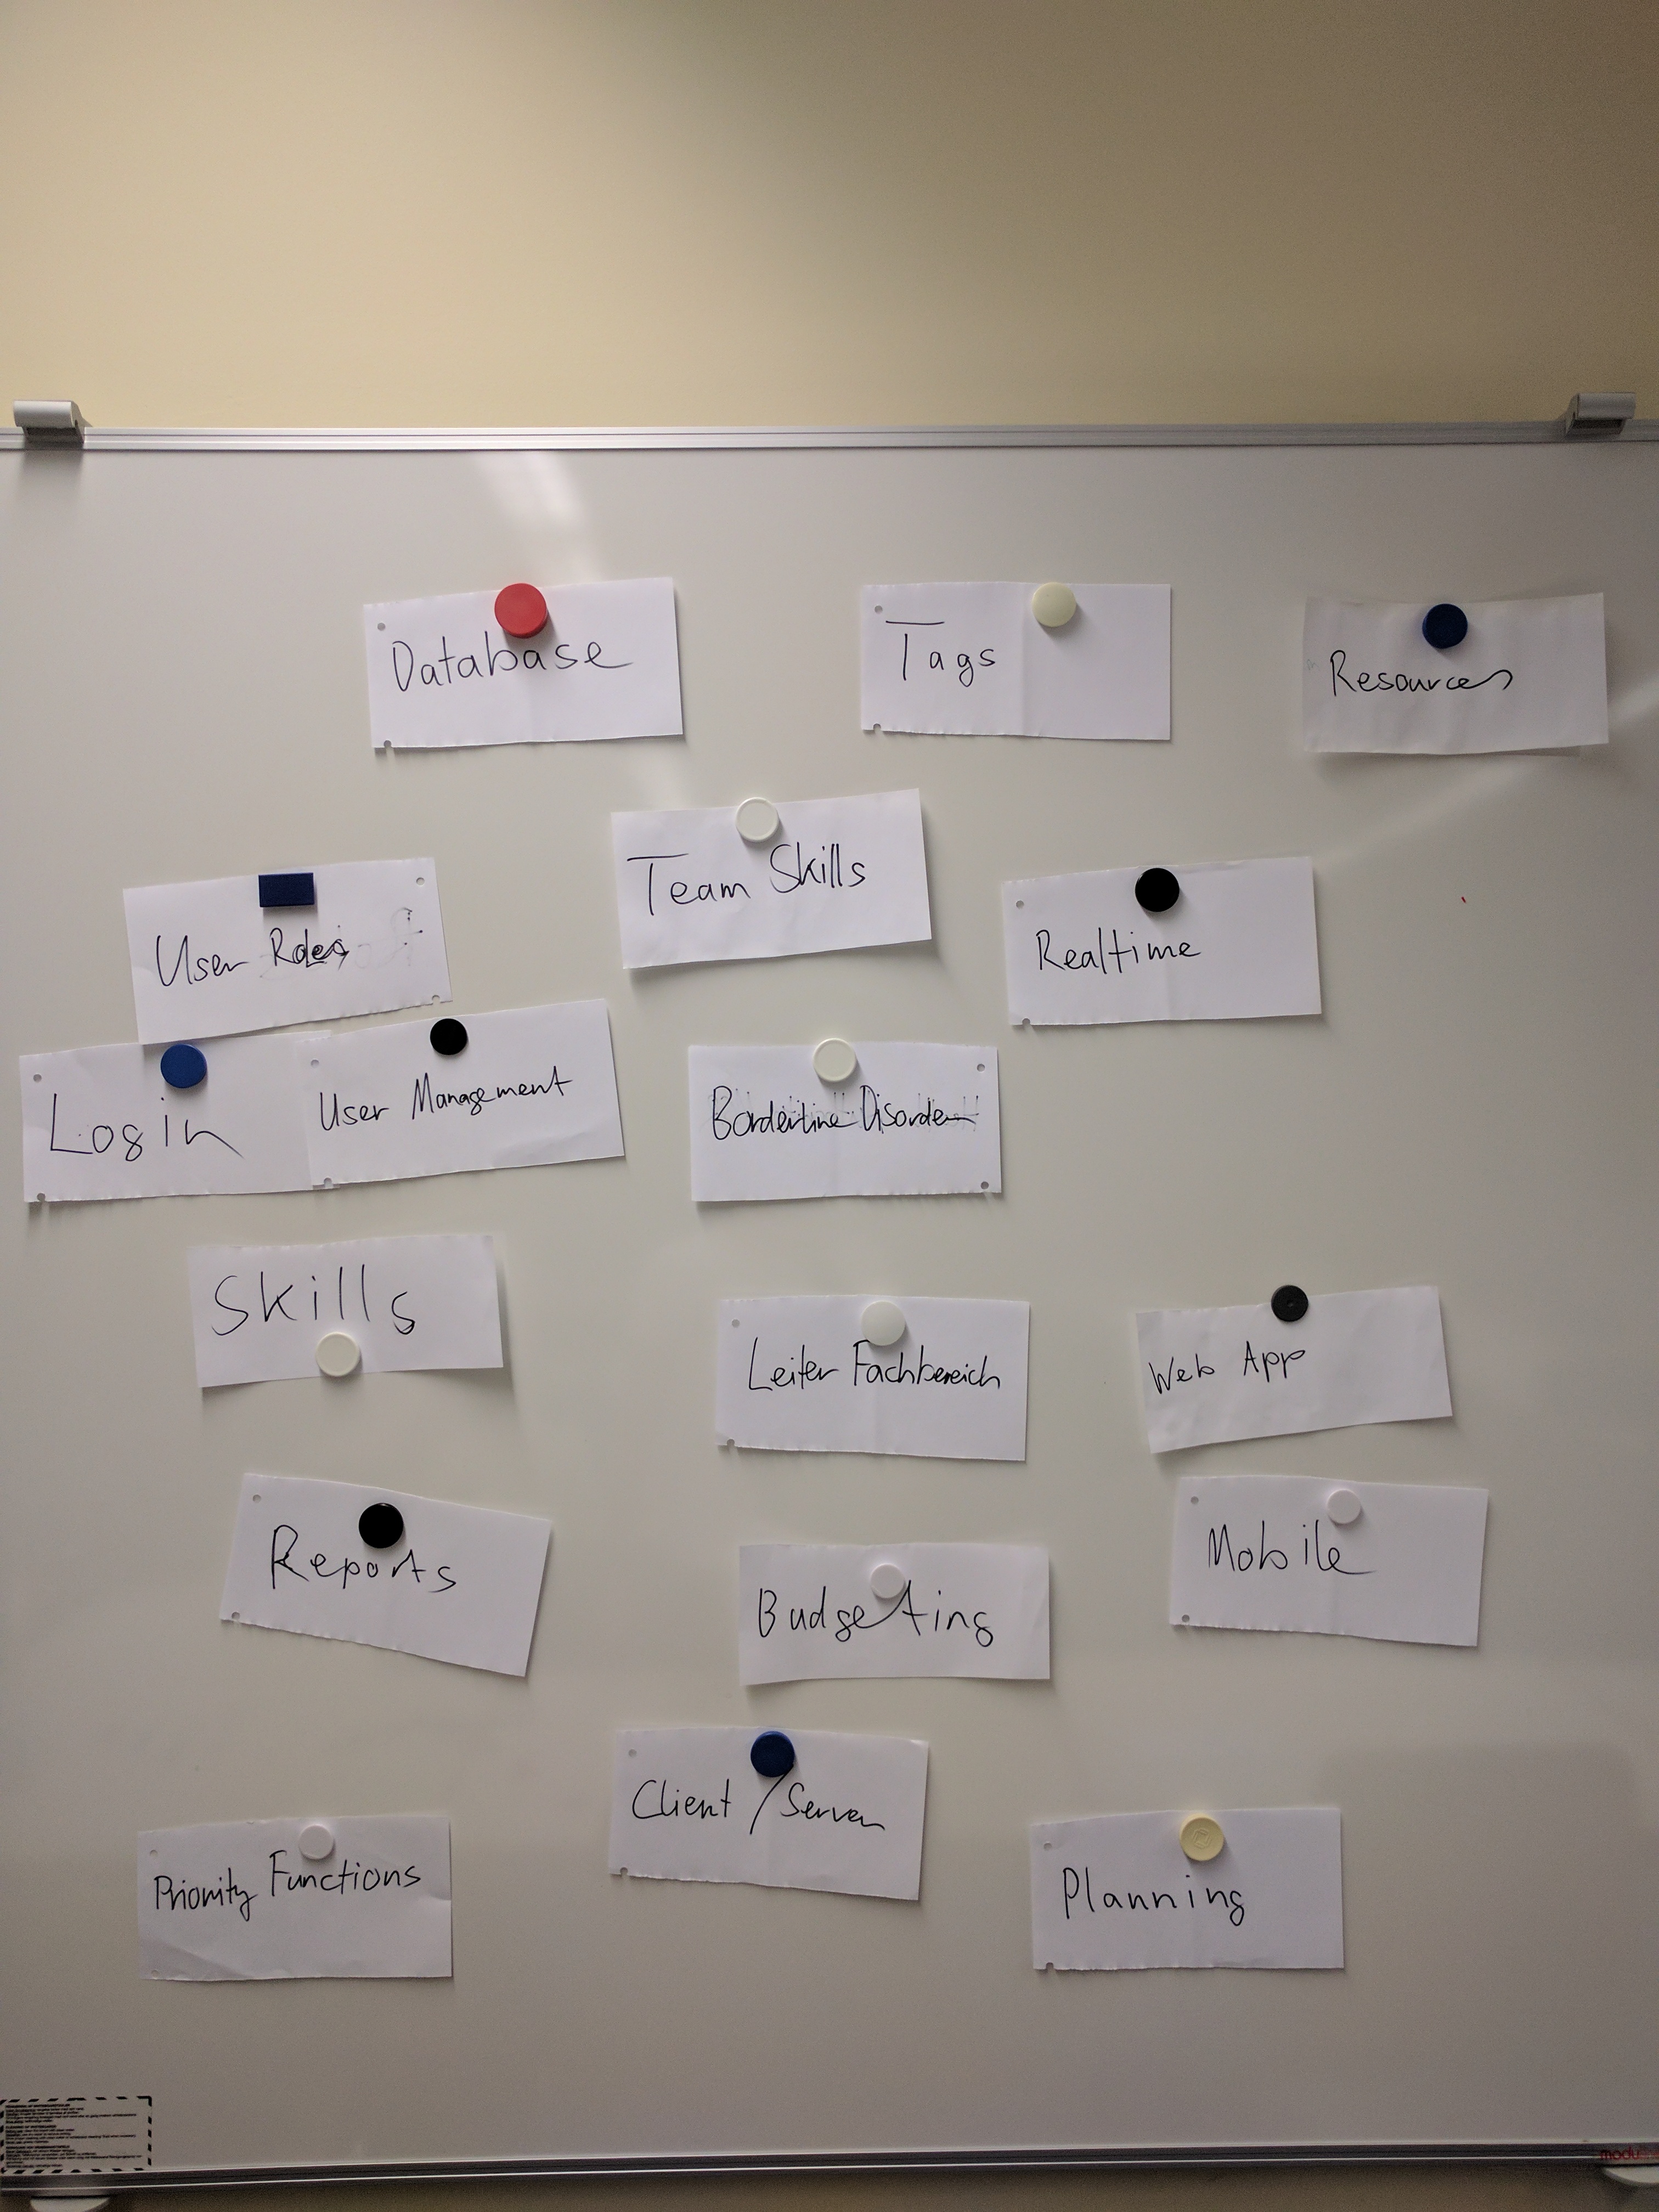 Database
Tags
Resources
Team Skills
User Roles
Realtime
Login
User Management
Borderline Disorder
Skills
Leiter Fachbereich
Web App
Reports
Mobile
Budgeting
Client / Server
Priority Functions
Planning